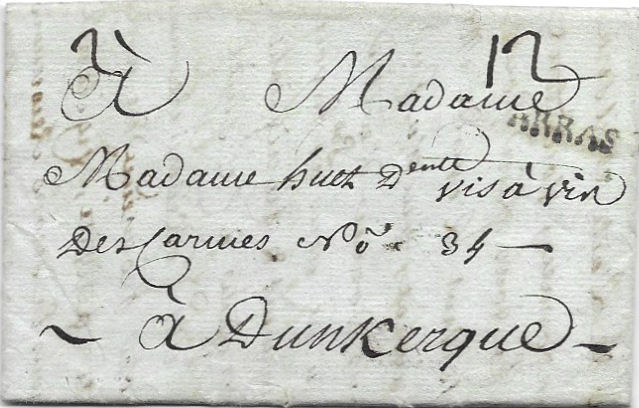 2 12
À Madame
ARRAS
Madame huet Deute vis à vis
Des Carmes No. 34
à Dunkerque